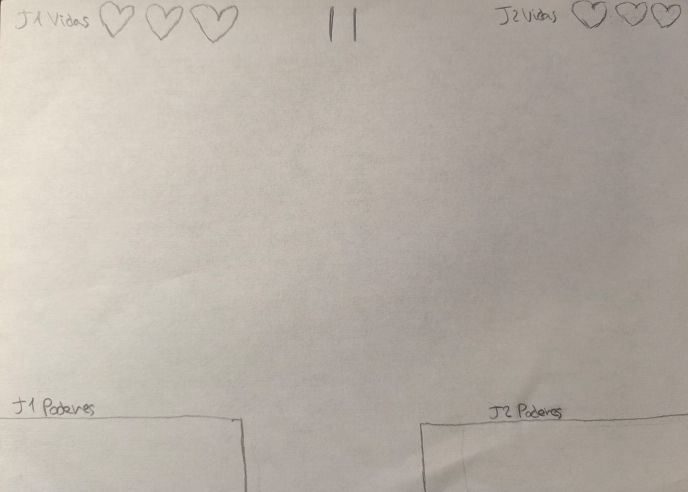 J1 Vidas
J2 Vidas
J1 Poderes
J2 Poderes